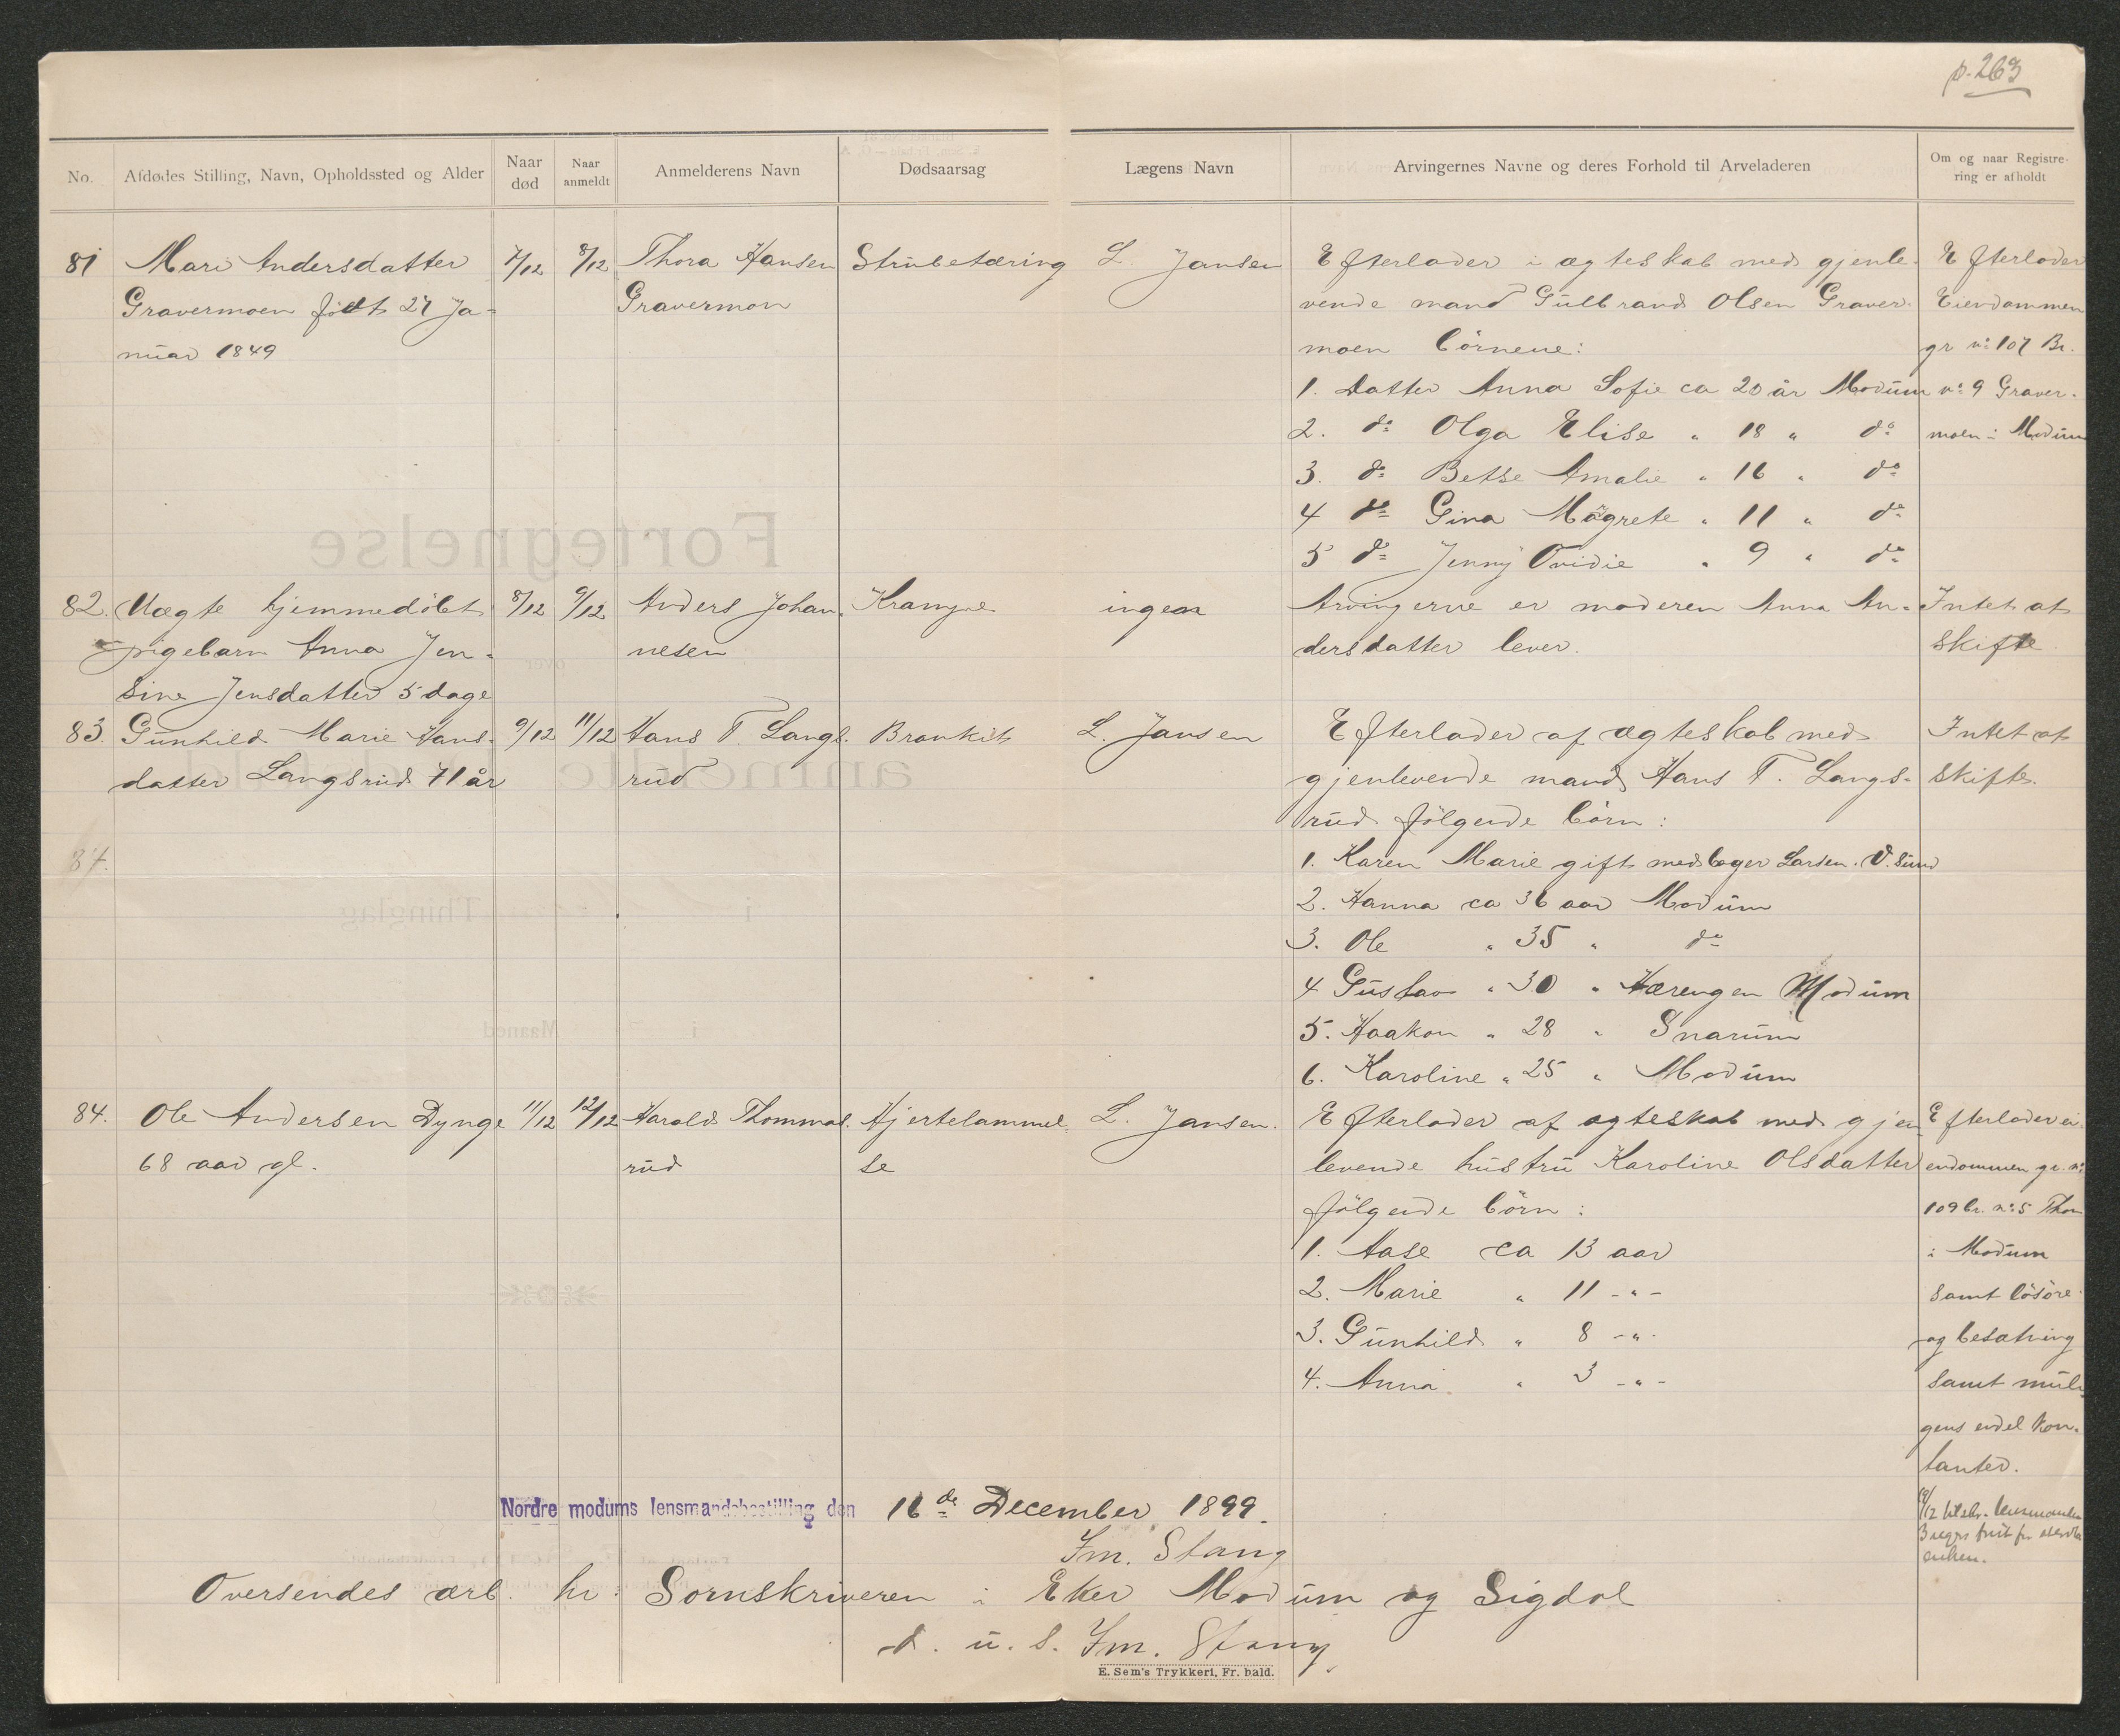 p. 263
No.
Afdødes Stilling, Navn, Opholdssted og Alder
Naar
død
Naar
anmeldt
Anmelderens Navn
Dødsaarsag
Lægens Navn
Arvingernes Navne og deres Forhold til Arveladeren
Om og naar Registre-
ring er afholdt
81
Mari Andersdatter
Gravermoen født 27 Ja-
nuar 1849
7/12
8/12
Thora Hansen
Gravermon
Strubetæring
L. Jansen
Efterlader i ægteskab med gjenle-
vende mand Gulbrand Olsen Graver-
moen börnene:
1. Datter Anna Sofie ca 20 år Modum
2. do Olga Elise " 18 " do
3. do Betse Amalie " 16 " do
4 do Gina Magrete " 11 " do
5 do Jenny Ovidie " 9 " do
Efterlader
Eiendommen
gr no 107 Br.
no 9 Graver-
moen i Modum
82.
Uægte hjemmedöbt
pigebarn Anna Jen-
sine Jensdatter 5 dage
8/12
9/12
Anders Johan-
nesen
Krampe
ingen
Arvingerne er moderen Anna An-
dersdatter lever.
Intet at
skifte
83.
Gunhild Marie Hans-
datter Langsrud 71 år
9/12
11/12
Hans T. Langs-
rud
Brankit
L. Jansen
Efterlader af ægteskab med
gjenlevende mand Hans T. Langs-
rud følgende börn:
1. Karen Marie gift med bager Larsen. V. Sund
2. Hanna ca 36 aar Modum
3. Ole " 35 " do
4 Gustav " 30 " Hærengen Modum
5. Haakon " 28 " Snarum
6. Karoline " 25 " Modum
Intet at
skifte.
84.
Ole Andersen Dynge
68 aar gl.
11/12
12/12
Harald Thommas-
rud
Hjertelammel-
se
L. Jansen.
Efterlader af ægteskab med gjen-
levende hustru Karoline Olsdatter
følgende börn:
1. Aase ca 13 aar
2. Marie " 11 - " -
3. Gunhild " 8 - " -
4. Anna " 3 - " -
Efterlader ei-
endommen gr. no
109 br. no 5 Thon
i Modum
samt lösöre
og besætning
samt muli-
gens endel kon-
tanter.
Nordre modums lensmandsbestilling den 16de December 1899.
Jm. Stang
Oversendes ærb. hr. Sornskriveren i Eker Modum og Sigdal
d. u. s. Jm. Stang.
E. Sem's Trykkeri, Fr. hald.